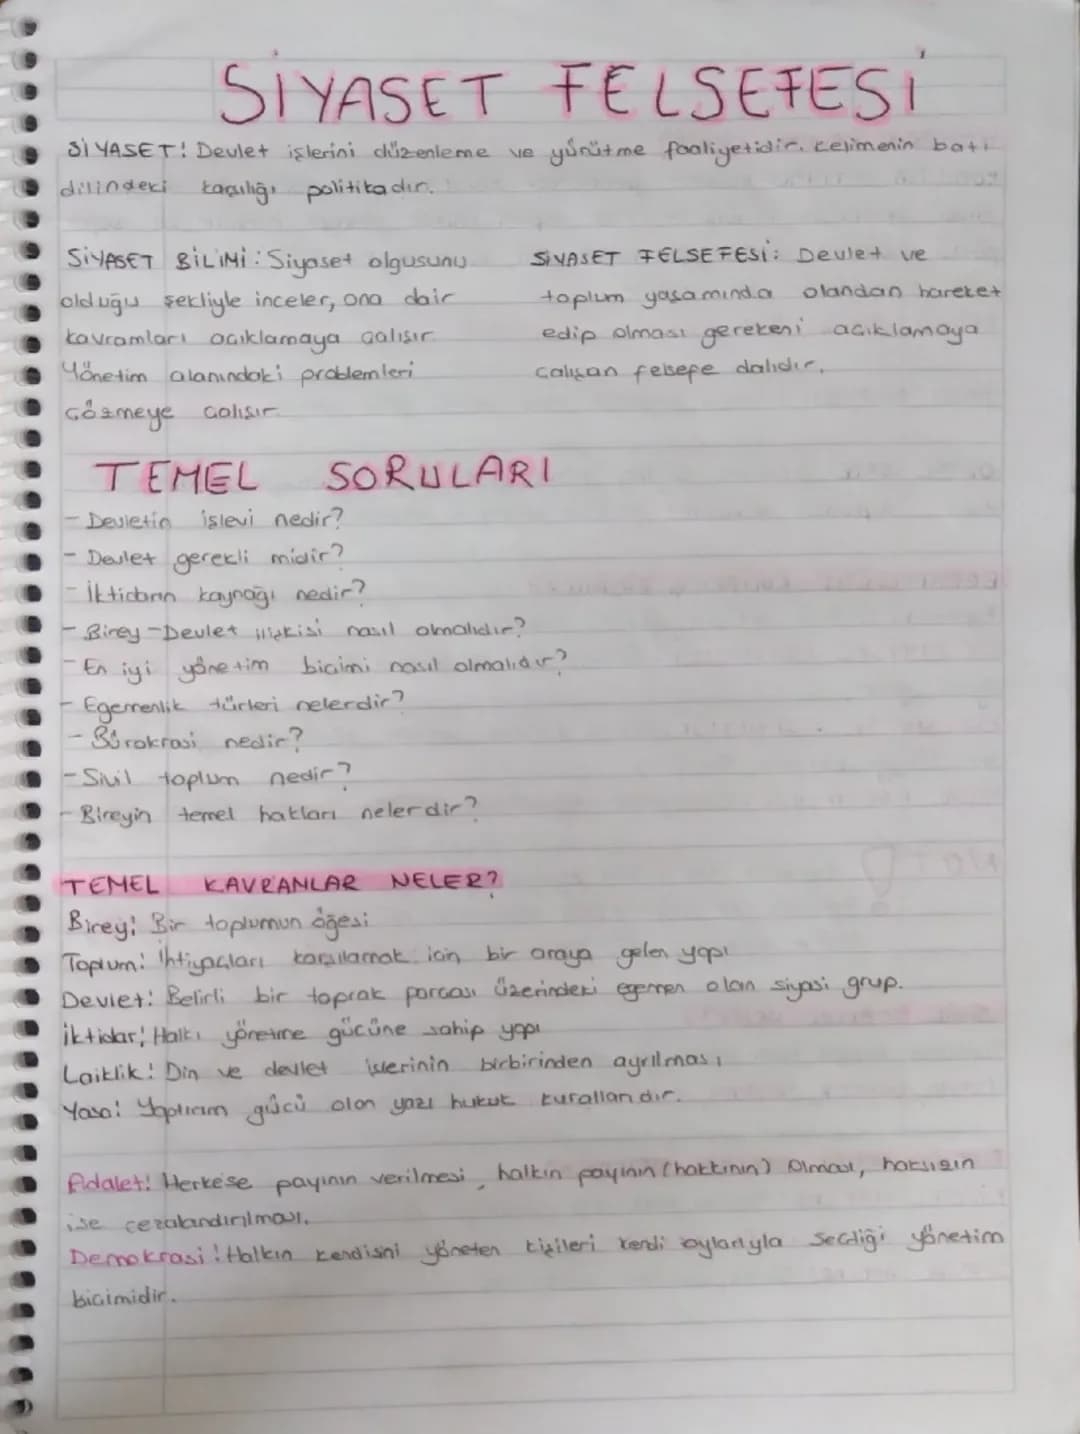 SİYASET FELSEFESİ
SİYASET: Devlet işlerini düzenleme ve yürütme faaliyetidir. Kelimenin batı
dilindeki karşılığı politikadır.
SİYASET BİLİMİ: Siyaset olgusunu
olduğu şekliyle inceler, ona dair
kavramları açıklamaya çalışır.
Yönetim alanındaki problemleri
çözmeye çalışır.
SİYASET FELSEFESİ: Devlet ve
toplum yaşamında olandan hareket
edip olması gerekeni açıklamaya
çalışan felsefe dalıdır.
TEMEL SORULARI
- Devletin işlevi nedir?
- Devlet gerekli midir?
- İktidarın kaynağı nedir?
- Birey-Devlet ilişkisi nasıl olmalıdır?
- En iyi yönetim biçimi nasıl olmalıdır?
- Egemenlik türleri nelerdir?
- Bürokrasi nedir?
- Sivil toplum nedir?
- Bireyin temel hakları nelerdir?
TEMEL KAVRANLAR NELER?
Birey: Bir toplumun öğesi
Toplum: İhtiyaçları karşılamak için bir araya gelen yapı
Devlet: Belirli bir toprak parçası üzerindeki egemen olan siyasi grup.
İktidar: Halkı yönetme gücüne sahip yapı
Laiklik: Din ve devlet işlerinin birbirinden ayrılması
Yasa: Yaptırım gücü olan yazı hukuk kurallarıdır.
Adalet: Herkese payının verilmesi, halkın payının (hakkının) olması, haksızın
ise cezalandırılması.
Demokrasi: Halkın kendisni yöneten kişileri kendi oylarıyla seçdiği yönetim
biçimidir.